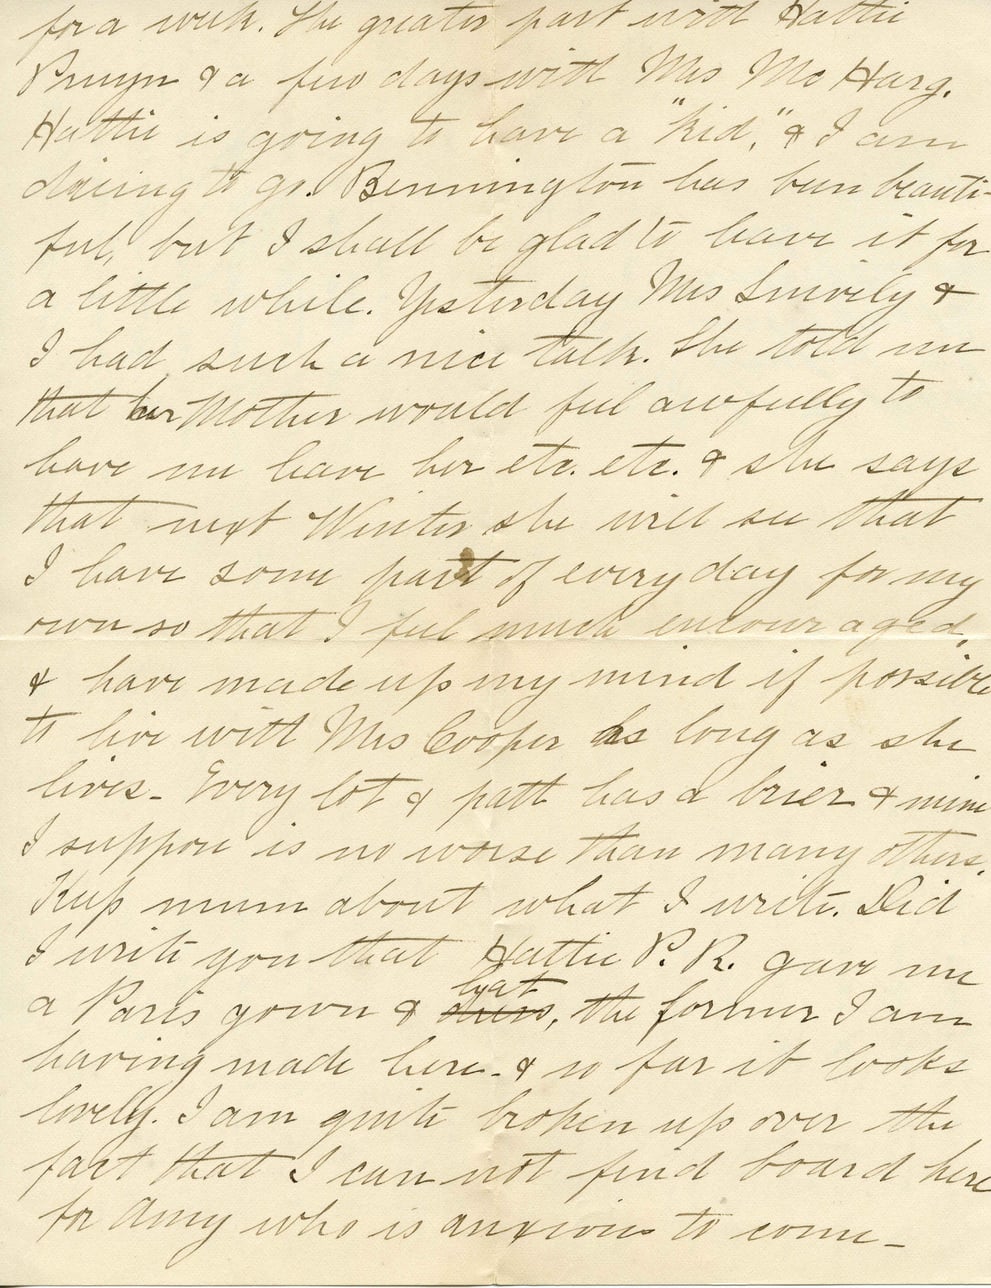 for a week. The greater part with Hattie
Pruyn & a few days with Mrs Mc Harg.
Hattie is going to have a "kid," & I am
to go. Bennington has been beauti-
ful, but I shall be glad to leave it for
a little while. Yesterday Mrs Snively &
I had such a nice talk. She told me
that her Mother would feel awfully to
have me leave her etc. etc. & she says
that next Winter she will see that
I have some part of every day for my
own so that I feel much encouraged,
& have made up my mind if possible
to live with Mrs Cooper as long as she
lives - Every lot & path has a brier & mine
I suppose is no worse than many others.
Keep mum about what I write. Did
I write you that Hattie P. R. gave me
hat
a Paris gown & dress, the former I am
having made here - & so far it looks
lovely. I am quite broken up over the
fact that I can not find board here
for Amy who is anxious to come -